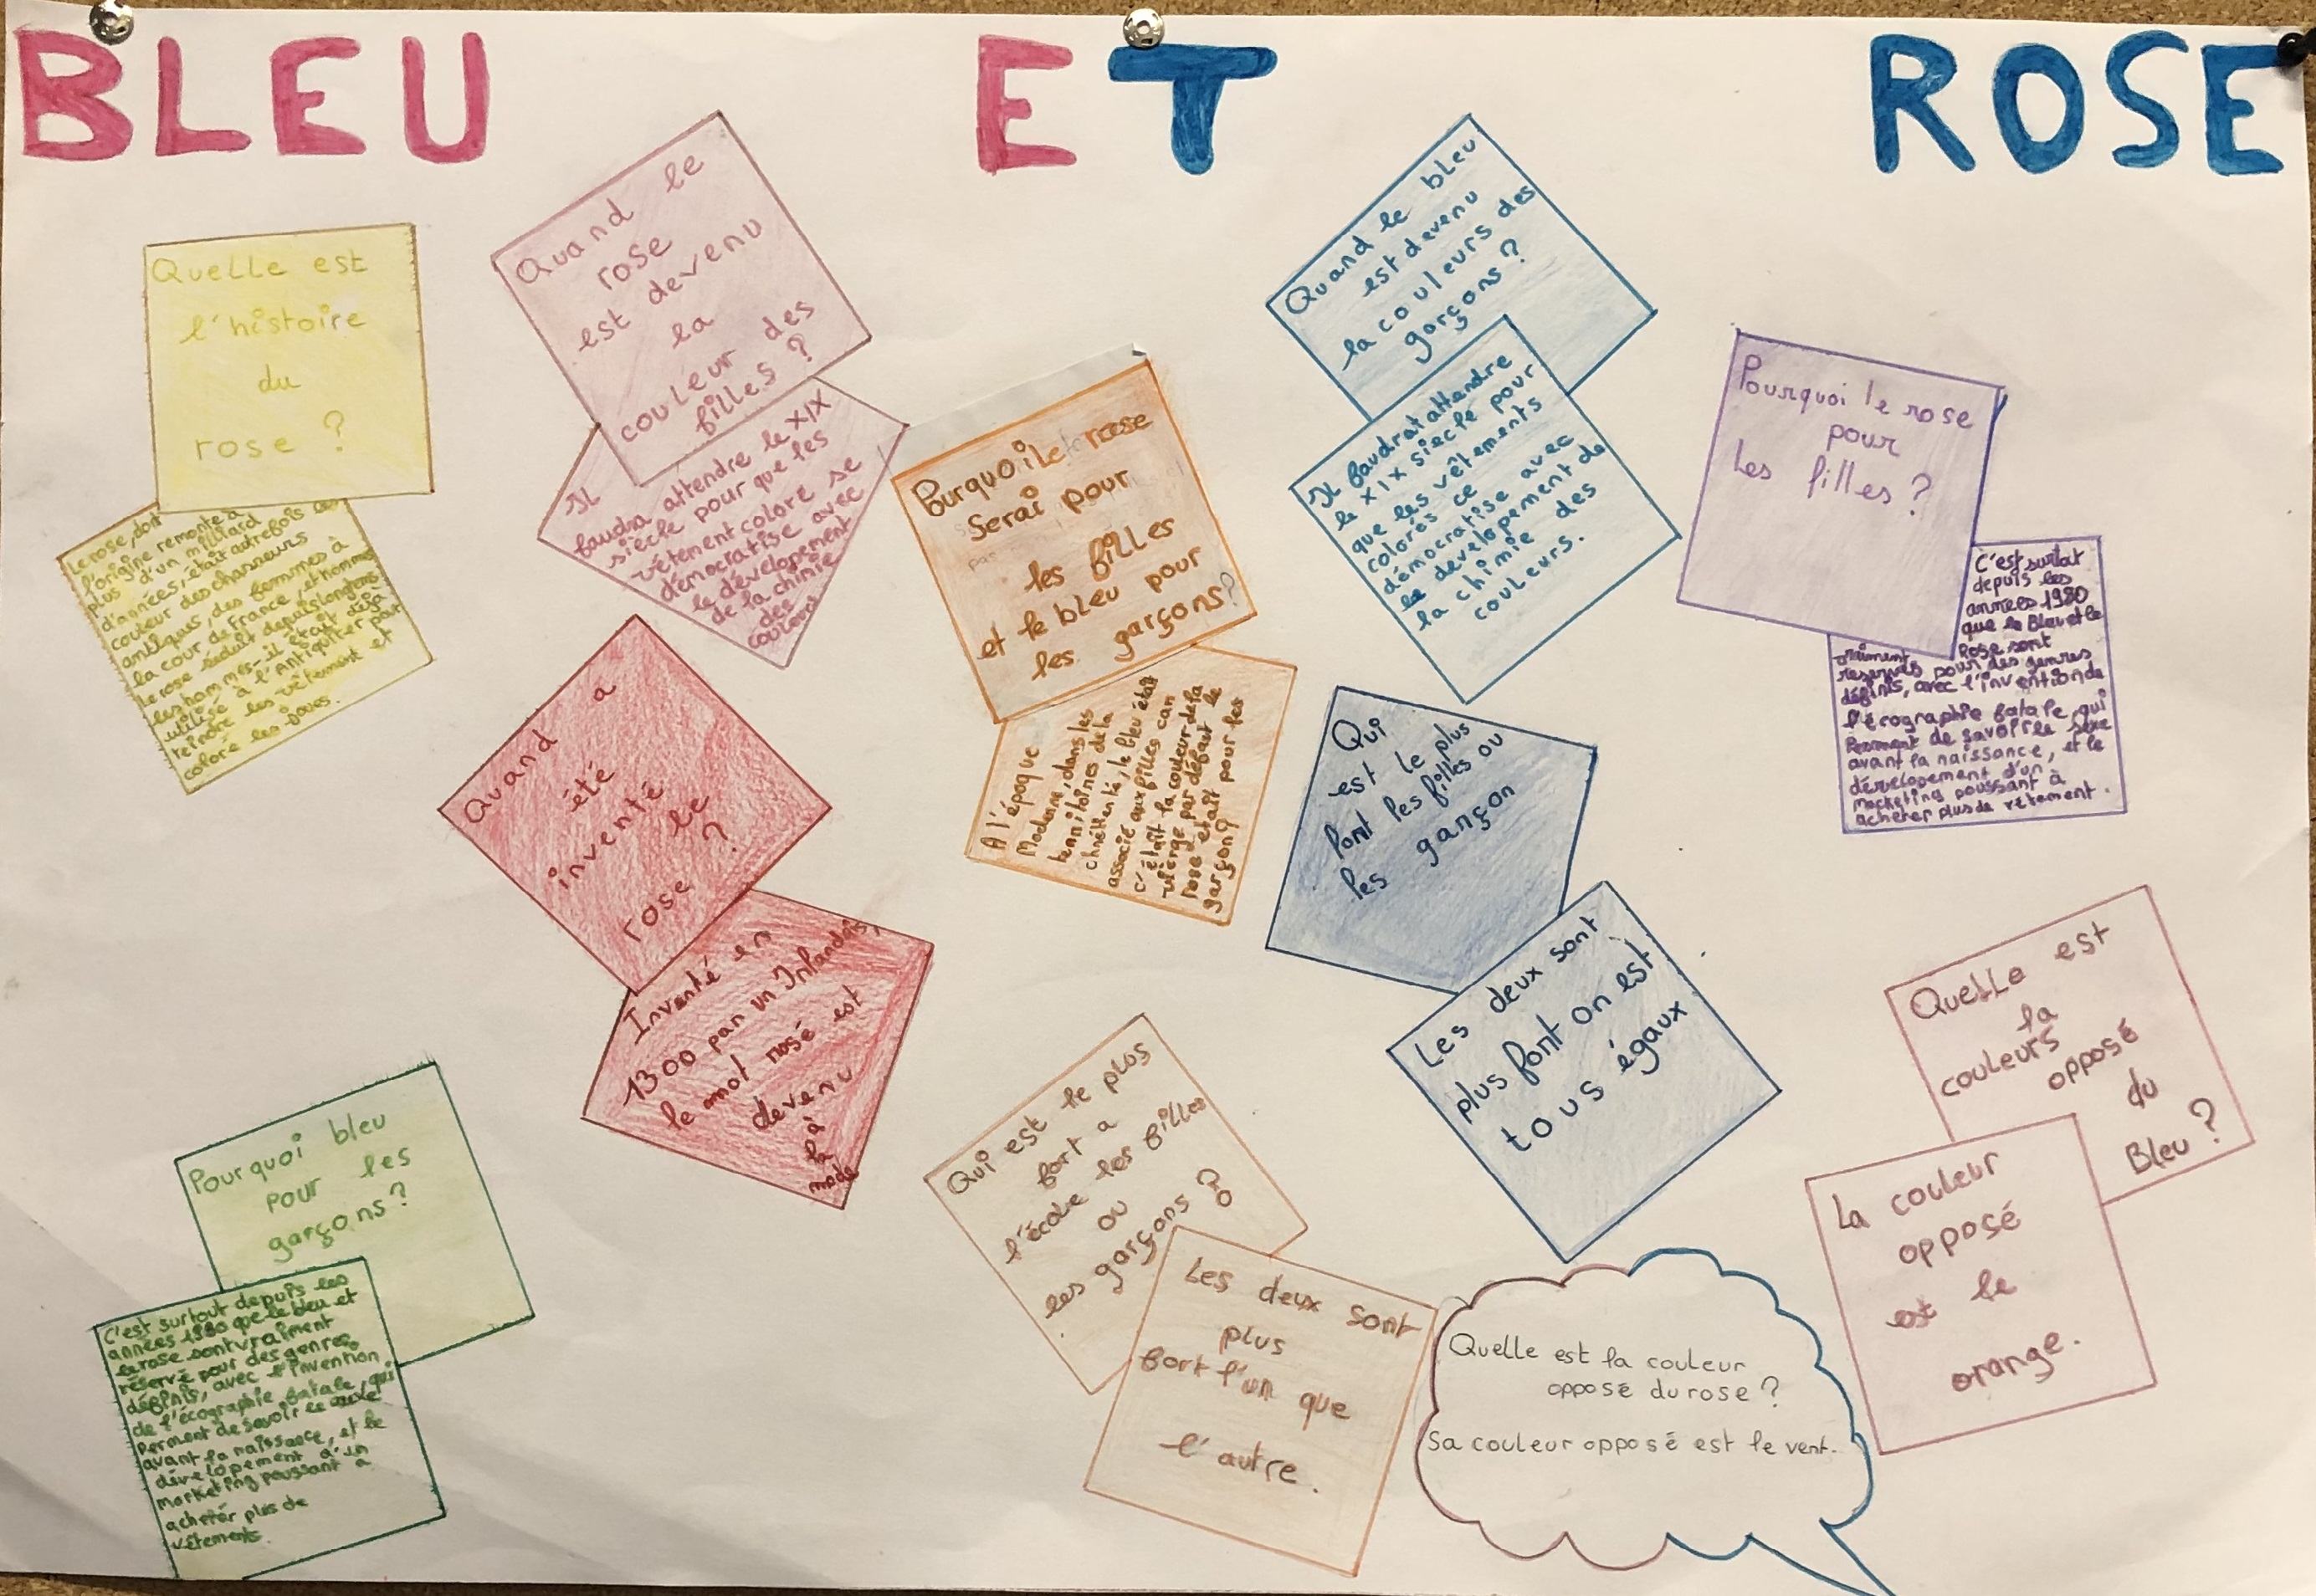 BLEU ET ROSE
Quelle est
l'histoire
du
rose ?
Le rose, dont
l'origine remonte à
plus d'un milliard
d'années, était autrefois la
couleur des chasseurs
antiques, des femmes à
la cour de France, et hommes
Le rose séduit depuis longtemps
les hommes il était déjà
utilisé à l'Antiquiter pour
teindre les vêtement et
coloré les joues.
Quand le
rose
est devenu
la
couleur des
filles ?
Il
faudra attendre le XIX
siècle pour que les
vêtement coloré se
démocratise avec
le dévelopement
de la chimie
des
couleurs
Quand a
été
inventé
le
rose ?
Inventé en
1300 par un Irlandais,
le mot rosé est
devenu
à
la
mode
Pourquoi bleu
pour les
garçons ?
C'est surtout depuis les
années 1980 que le bleu et
le rose sont vraiment
réservé pour des genres
définis, avec l'invention
de l'écographie fatale, qui
perment de savoir le sexe
avant la naissance, et le
dévelopement d'un
marketing poussant à
acheter plus de
vêtements.
Pourquoi le rose
Serai pour
les filles
et le bleu pour
les garçons ?
A l'époque
Moderne, dans les
territoires de la
chrétienté, le bleu était
associé aux filles car
c'était la couleur de la
vierge par défaut le
rose était pour les
garçon ?
Quand le bleu
est devenu
la couleurs des
garçons ?
Il faudrat attendre
le XIX siecle pour
que les vêtements
colorés ce
démocratise avec
le developement de
la chimie des
couleurs.
Qui
est le plus
font les filles ou
les garçon
Les deux sont
plus font on est
tous égaux
Pourquoi le rose
pour
les filles ?
C'est surtout
depuis les
années 1980
que le Bleu et le
Rose sont
vraiment
reservés pour des genres
définis, avec l'invention de
l'écrographie fatale, qui
Perment de savoir le sexe
avant la naissance, et le
dévelopement d'un
marketing poussant à
acheter plus de vêtement.
Qui est le plus
fort a
l'école les filles
ou
les garçons ?
Les deux sont
plus
fort l'un que
l'autre.
Quelle est
la
couleurs
opposé
du
Bleu ?
La couleur
opposé
est le
orange.
Quelle est la couleur
opposé du rose ?
Sa couleur opposé est le vert.